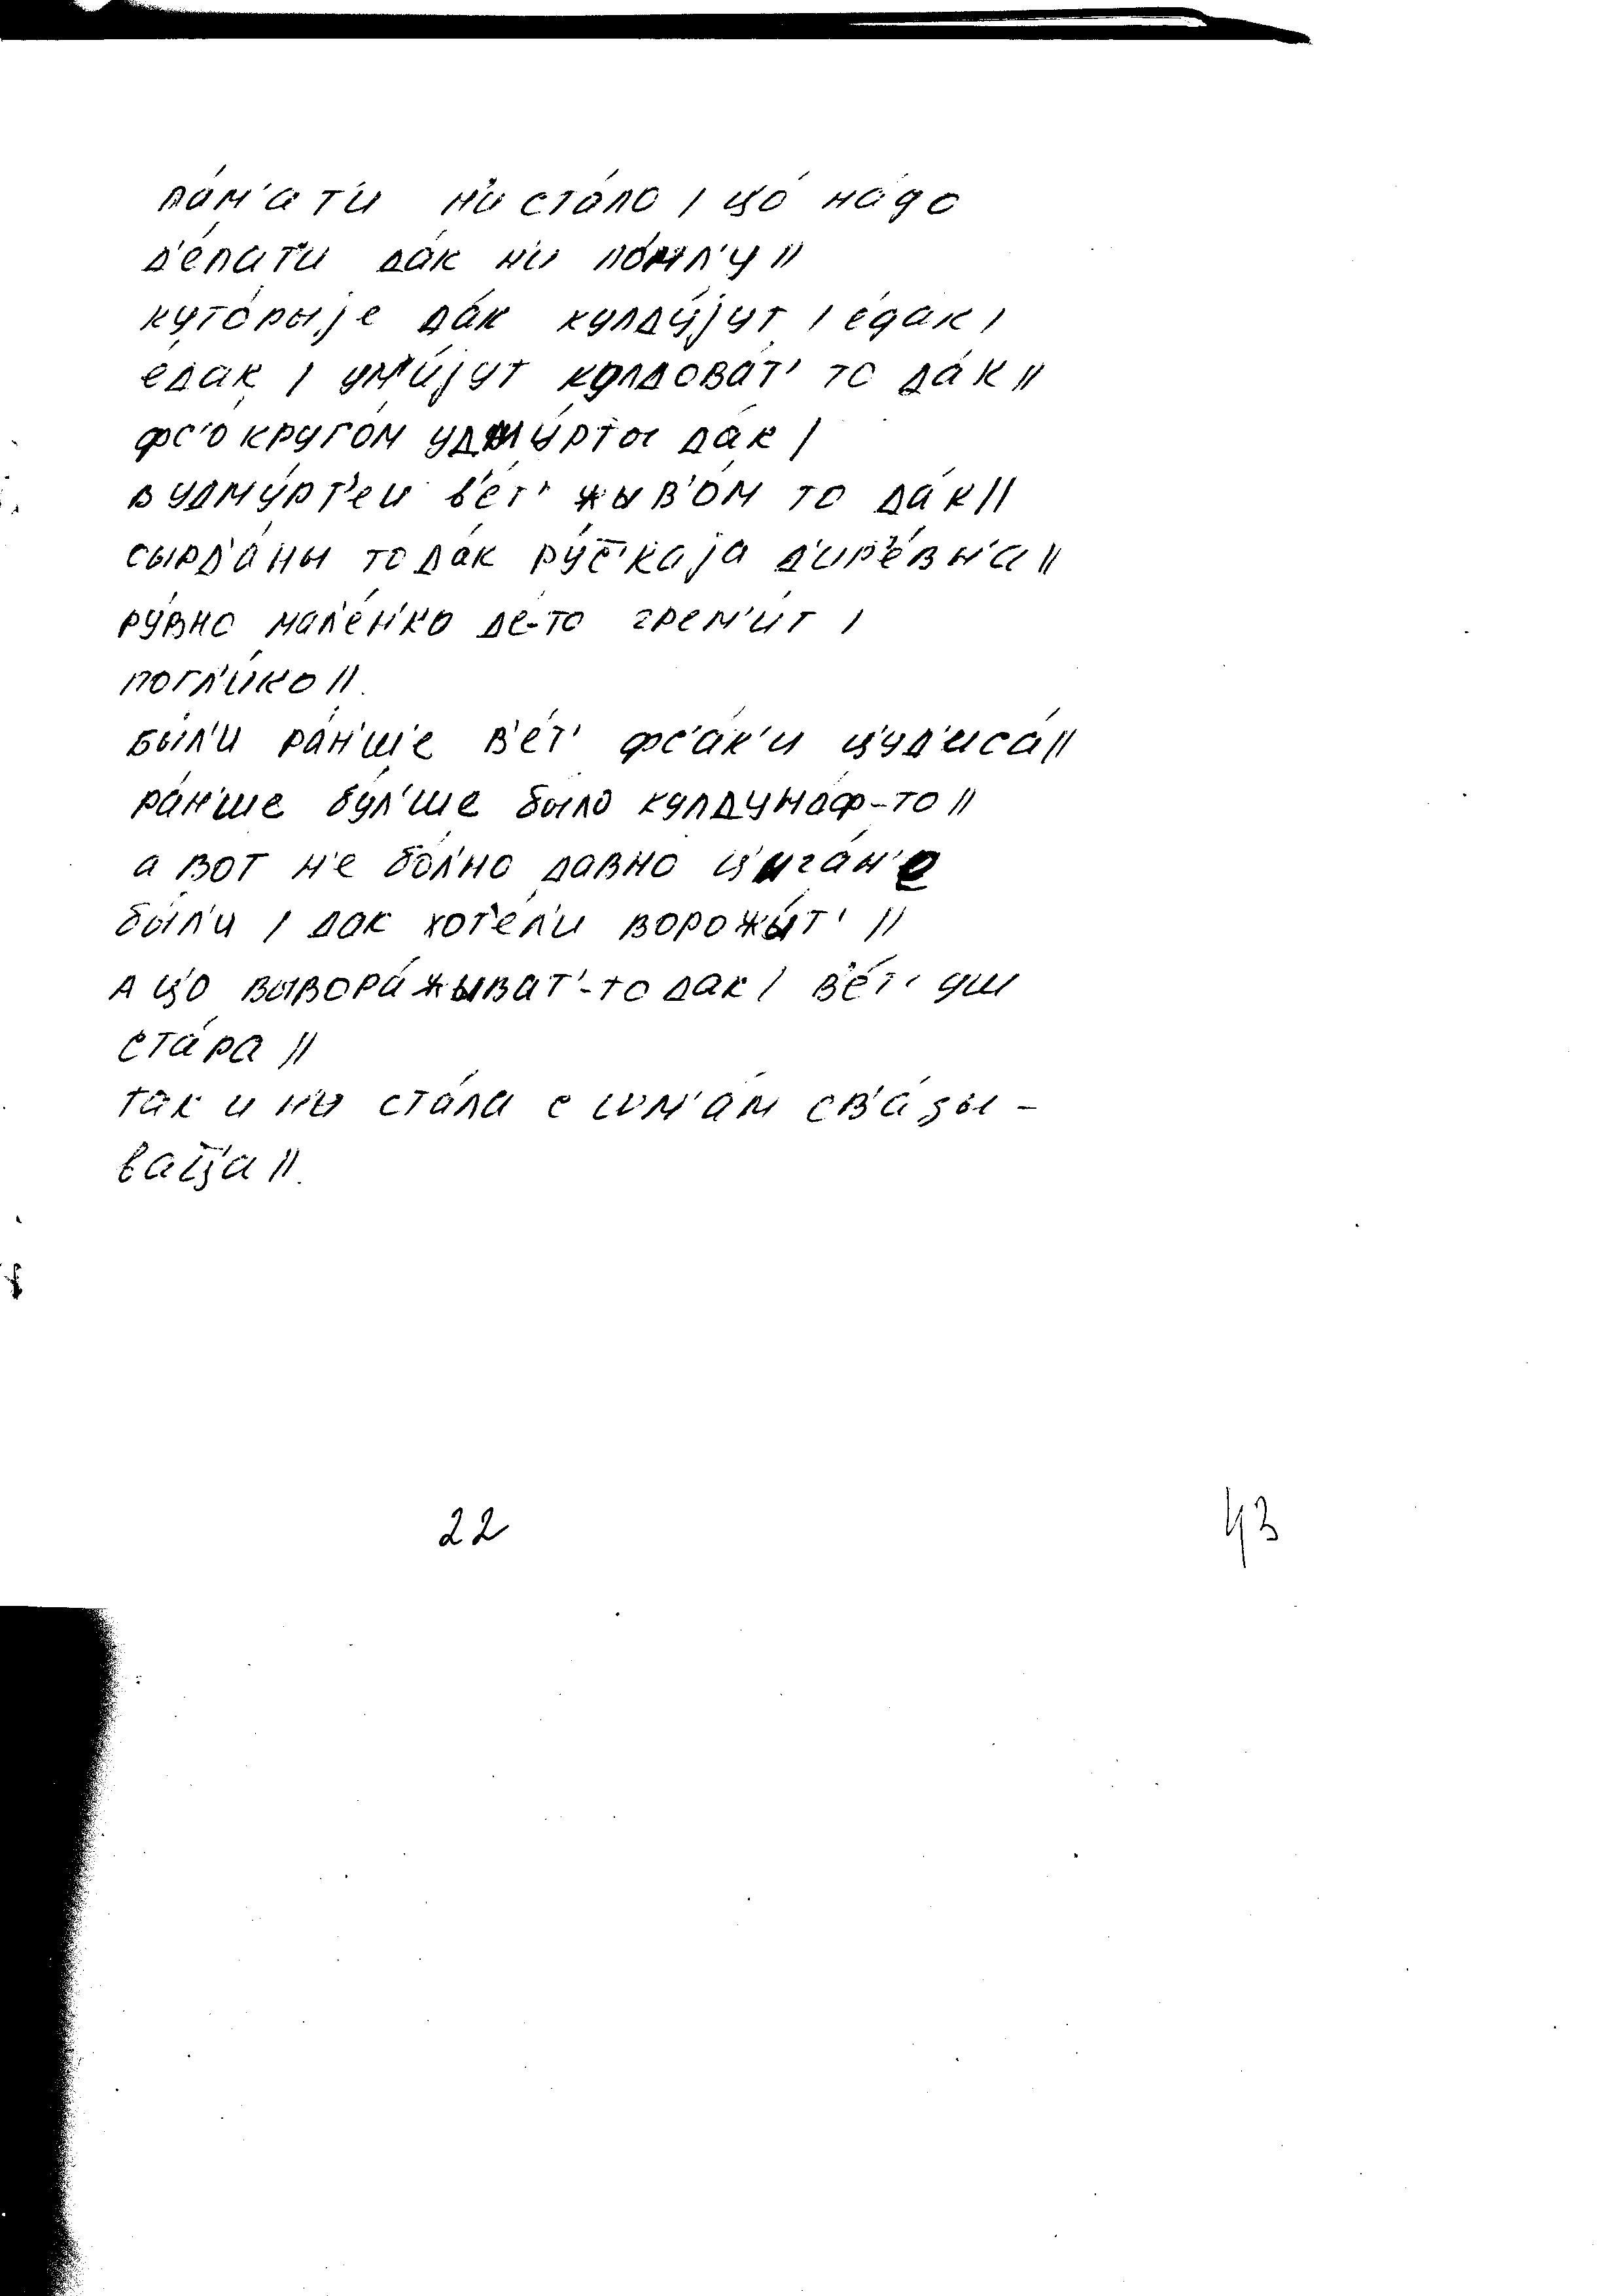 па́м'ат'и н'и ста́ло / ц'о́ на́до
д'е́лат'и да́к н'и по́мл'у //
куто́рыjе да́к кулду́jут / е́дак /
е́дак / ум'и́jут колдова́т' то да́к //
фс'о круго́м удму́рты да́к /
в удму́рт'еи в'е́т' жыв'о́м то да́к //
сырд'а́ны то да́к ру́с̄'каjа д'ир'е́вн'а //
ру́вно мал'е́н'ко де-то грем'и́т /
погл'и́ко //
бы́л'и ра́н'ш'е в'е́т' фс'а́к'и ц'уд'иса́ //
ра́н'ше бу́л'ше было кулдуно́ф-то //
а вот н'е бо́л'но давно ц'ига́н'е
бы́л'и / дак хот'е́л'и ворожы́т' //
а ц'о вывора́жыват'-то дак / в'е́т' уш
ста́ра //
так и н'и ста́ла с им'а́м св'а́зы-
вац̄'а //
22 43